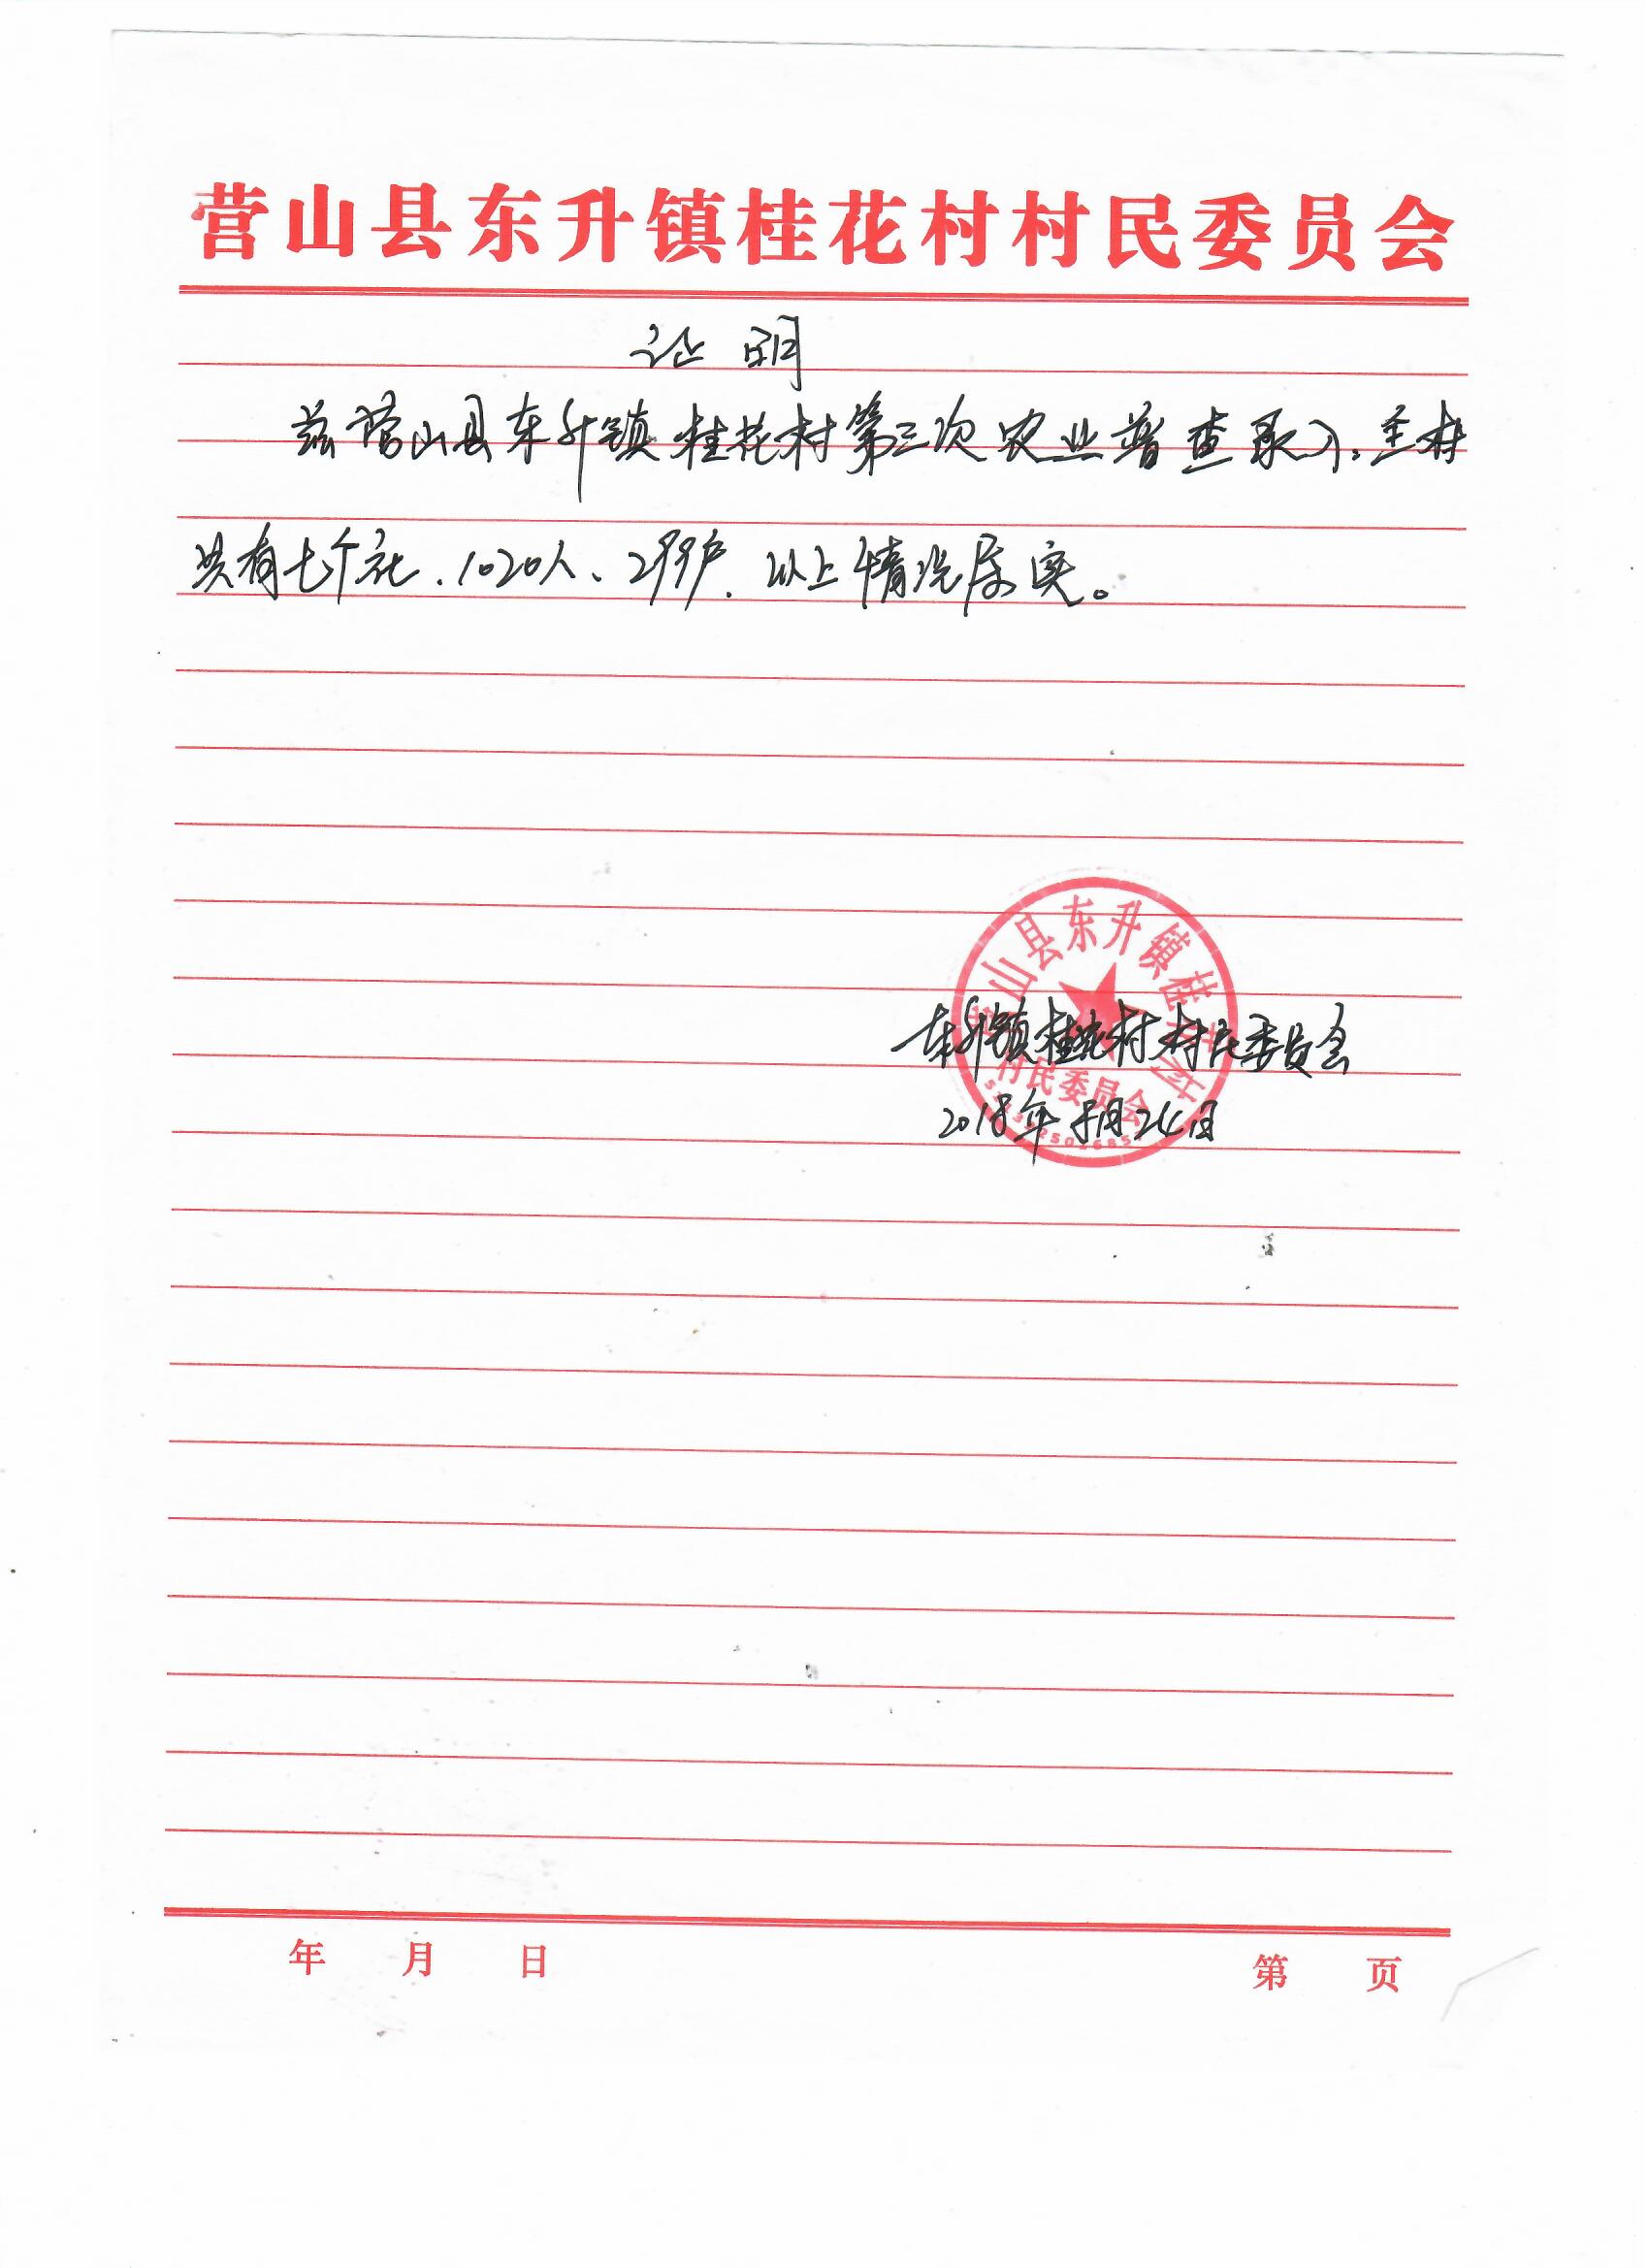 营山县东升镇桂花村村民委员会
证明
兹营山县东升镇桂花村第三次农业普查录入:全村
共有七个社、1020人、299户.以上情况属实。
山县东升镇桂花村
村民委员会
东升镇桂花村村民委员会
2018年 月24日
年 月 日 第 页